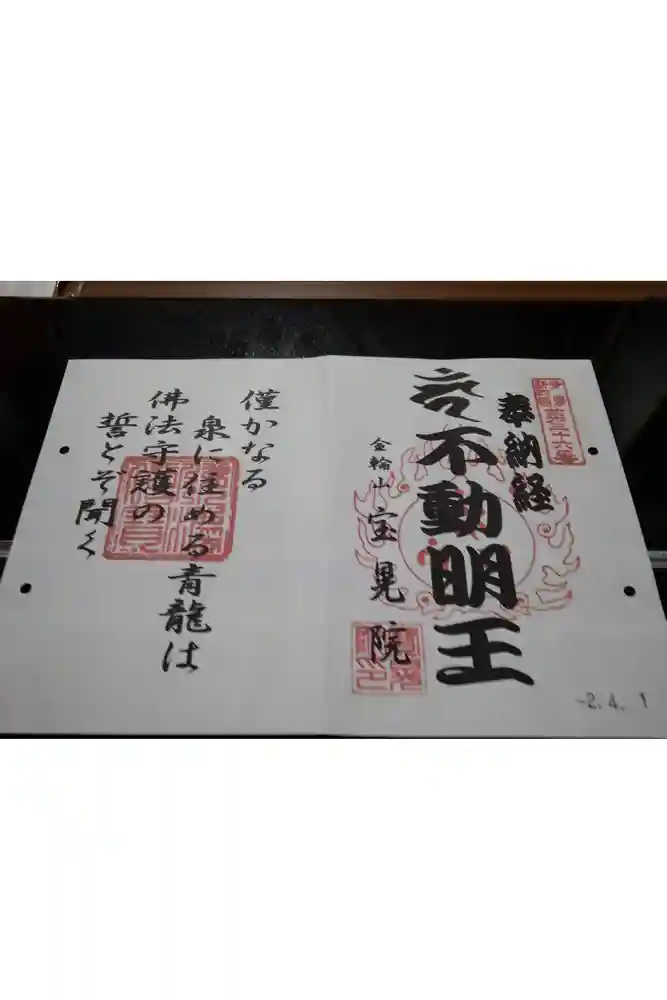 奉納経
不動明王
金輪山
宝晃院
-2.4.1
僅かなる
泉に住める青龍は
佛法守護の
誓とぞ聞く